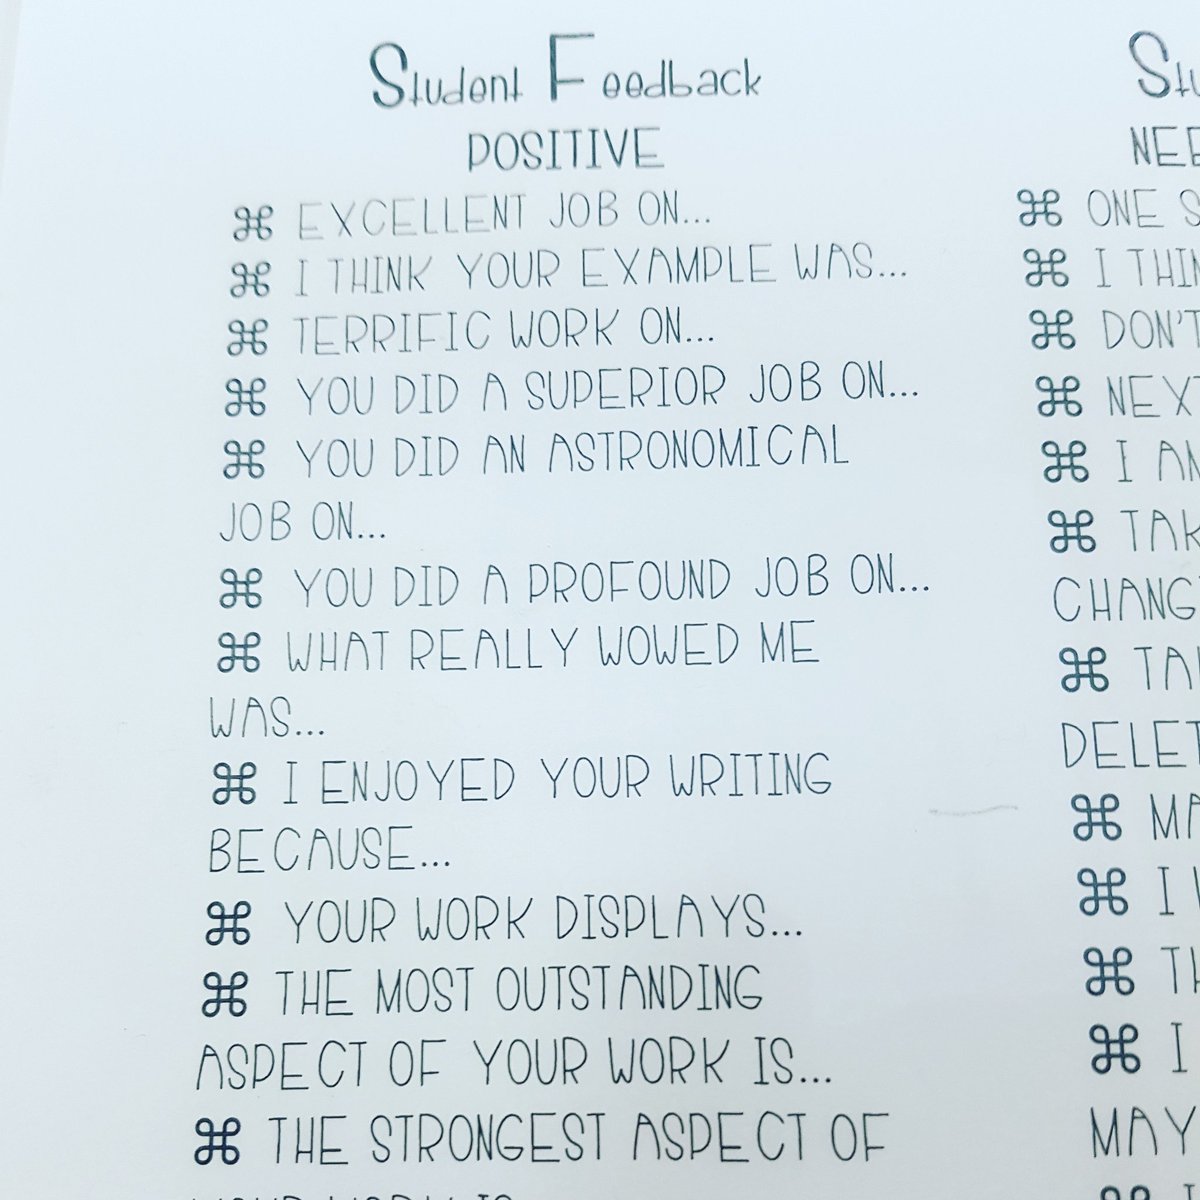 Student Feedback
POSITIVE
⌘ EXCELLENT JOB ON...
⌘ I THINK YOUR EXAMPLE WAS...
⌘ TERRIFIC WORK ON...
⌘ YOU DID A SUPERIOR JOB ON...
⌘ YOU DID AN ASTRONOMICAL
JOB ON...
⌘ YOU DID A PROFOUND JOB ON...
⌘ WHAT REALLY WOWED ME
WAS...
⌘ I ENJOYED YOUR WRITING
BECAUSE...
⌘ YOUR WORK DISPLAYS...
⌘ THE MOST OUTSTANDING
ASPECT OF YOUR WORK IS...
⌘ THE STRONGEST ASPECT OF
YOUR WORK IS
⌘ ONE
⌘ I
⌘ DON'T
⌘ I
⌘ I
⌘ I
MAY